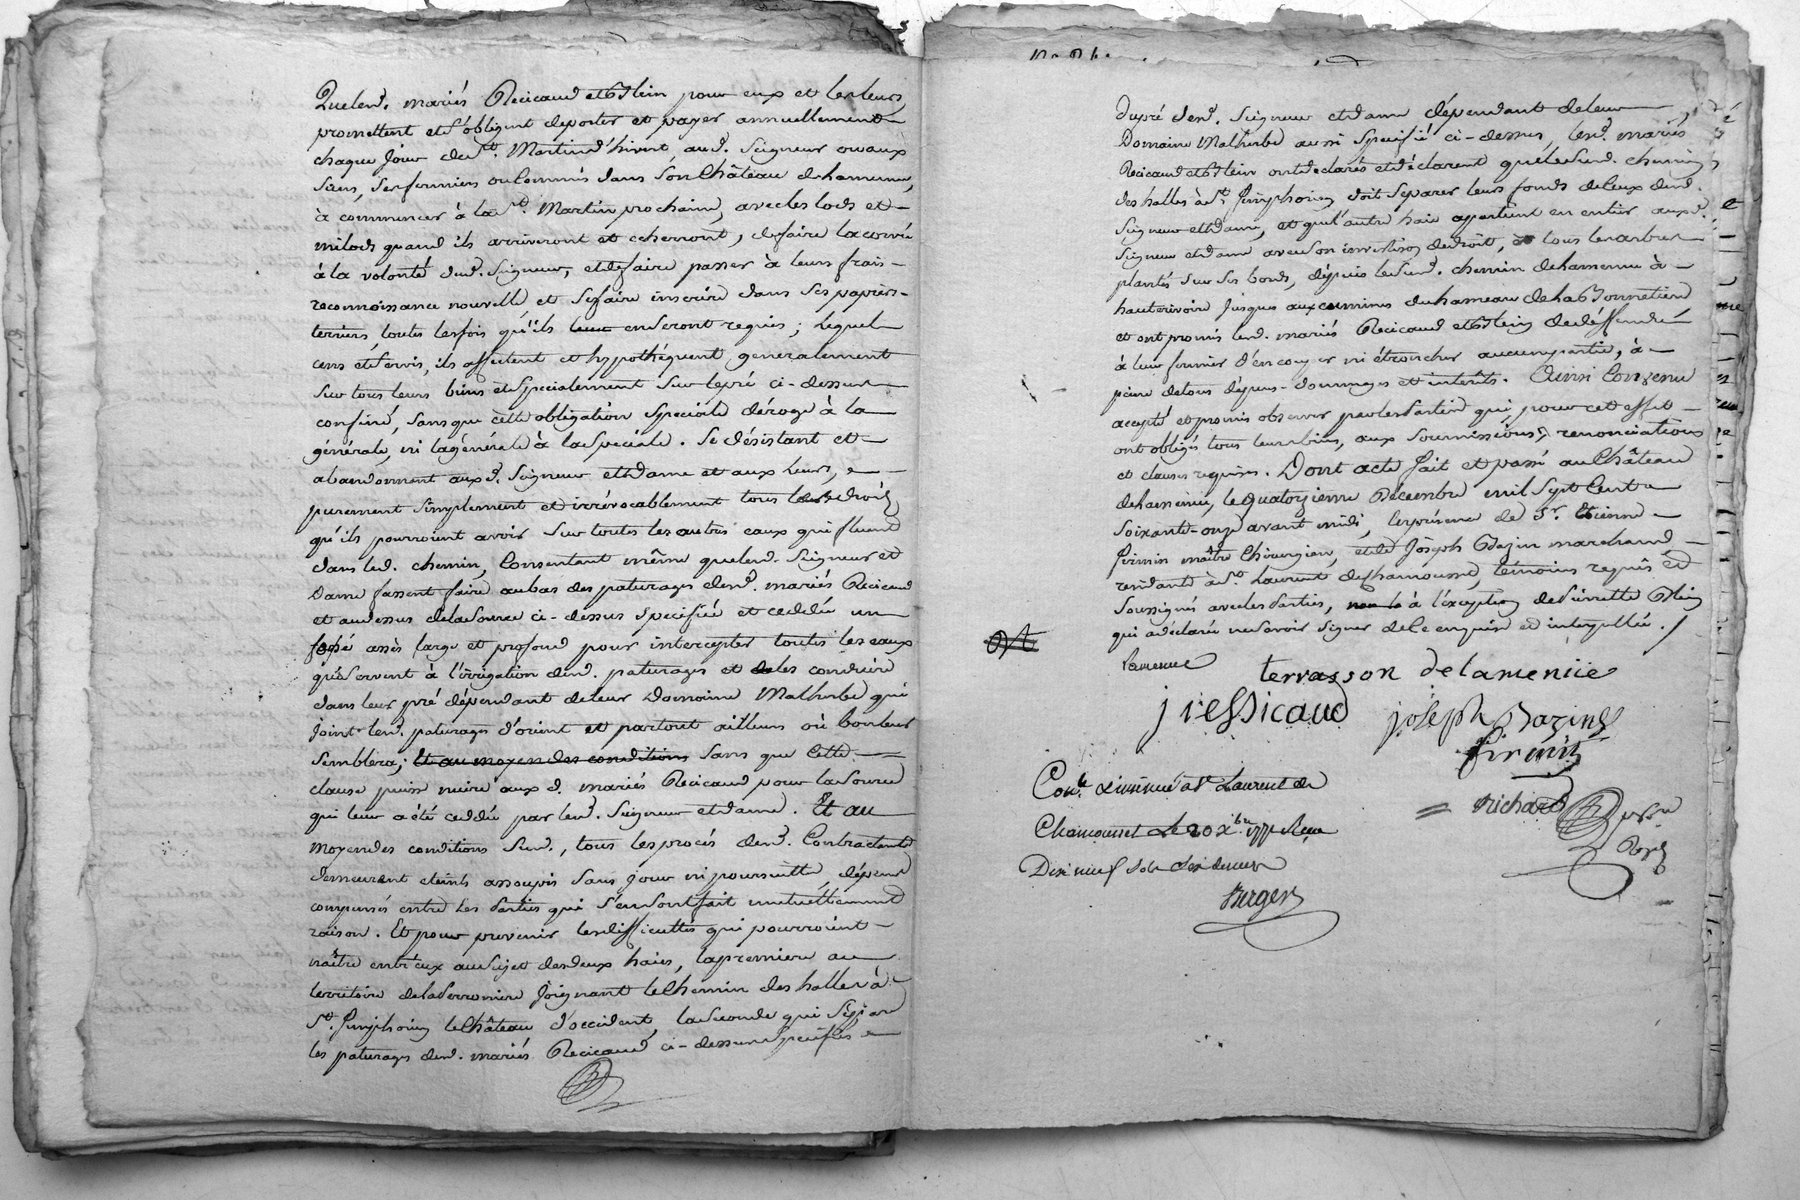 Quelesd. mariés Recicaud et Blein pour eux et les leurs,
promettent et s'obligent de porter et payer annuellement
chaque Jour de St. Martin d'hiver aud. Seigneur ou aux
Siens, Ses fermiers ou Commis dans Son Château de lamenue,
à commencer à la St. Martin prochaine, avec les lods et
milods quand ils arriveront et echerront, de faire la corvée
à la volonté dud. Seigneur, et de faire passer à leurs frais
reconnoissance nouvelle et Se faire inscrire dans Ses papiers
terriers, toutes les fois qu'ils en Seront requis; lequel
cens et Servis, ils affectent et hypothéquent generalement
Sur tous leurs biens et Specialement Sur le pré ci-dessus
confiné, Sans que cette obligation Speciale déroge à la
générale, ni la générale à la Speciale. Se désistant et
abandonnent auxd. Seigneur et Dame et aux leurs,
purement Simplement et irrévocablement tous les droits
qu'ils pourroient avoir Sur toutes les autres eaux qui fluent
dans led. chemin, Consentant même que lesd. Seigneur et
Dame fassent faire au bas des paturages desd. mariés Recicaud
et au dessus de la Source ci-dessus Specifiée et ceddée un
fossé assés large et profond pour intercepter toutes les eaux
qui Servent à l'irrigation desd. paturages et les conduire
dans leur pré dépendant de leur Domaine Malherbe qui
Joint lesd. paturages d'orient et partout ailleurs où bon leur
Semblera; Et au moyen des conditions Sans que Cette
clause puisse nuire auxd. mariés Recicaud pour la Source
qui leur a été ceddée par lesd. Seigneur et Dame. Et au
Moyen des conditions Susd., tous les procès desd. Contractants
demeurent eteints assoupis Sans jour ni poursuitte, dépens
compensés entre les Parties qui S'en Sont fait mutuellement
raison. Et pour prevenir les difficultés qui pourroient
naître entr'eux au Sujet des deux haies, la premiere au
territoire de la Joignant le Chemin des halles à
St. Simphorien le Château d'occident, la Seconde qui Separe
les paturages desd. mariés Recicaud ci-dessus Specifiés
du pré desd. Seigneur et Dame dépendant de leur
Domaine Malherbe aussi Specifié ci-dessus, lesd. mariés
Recicaud et Blein ont declarés et déclarent que le Susd. chemin
des halles à St. Simphorien doit Separer leurs fonds de Ceux desd.
Seigneur et Dame, et que l'autre haie appartient en entier auxd.
Seigneur et Dame avec Son invetison de droit, tous les arbres
plantés Sur Ses bords, dépuis le Susd. chemin de lamenue à
hauterivoire Jusques aux communes du hameau de la
et ont promis lesd. mariés Recicaud et Blein de déffendre
à leur fermier d'en couper ni étroncher aucune partie, à
peine de tous dépens-dommages et intérêts. Ainsi Convenu
accepté et promis observer par les Parties qui pour cet effet
ont obligés tous leurs biens, aux Soumissions, renonciations
et clauses requises. Dont acte fait et passé au Château
de lamenue, le Quatorzieme Décembre mil Sept Cent
Soixante-onze avant midi, en présence de Sr. Etienne
firmin maître Chirurgien, et de Joseph Bazin marchand
residants à St. Laurent de Chamousset, témoins requis et
Soussignés avec les Parties, à l'exception de Pierrette Blein
qui a déclaré ne Savoir Signer de Ce enquise et interpellée. /
lamenue terrasson delamenüe
j ressicaud joseph Bazin
firmin
richard
Conlé a St Laurent de
Chamousset le 20 Xbre 1771 Reçu
Dix neuf sols